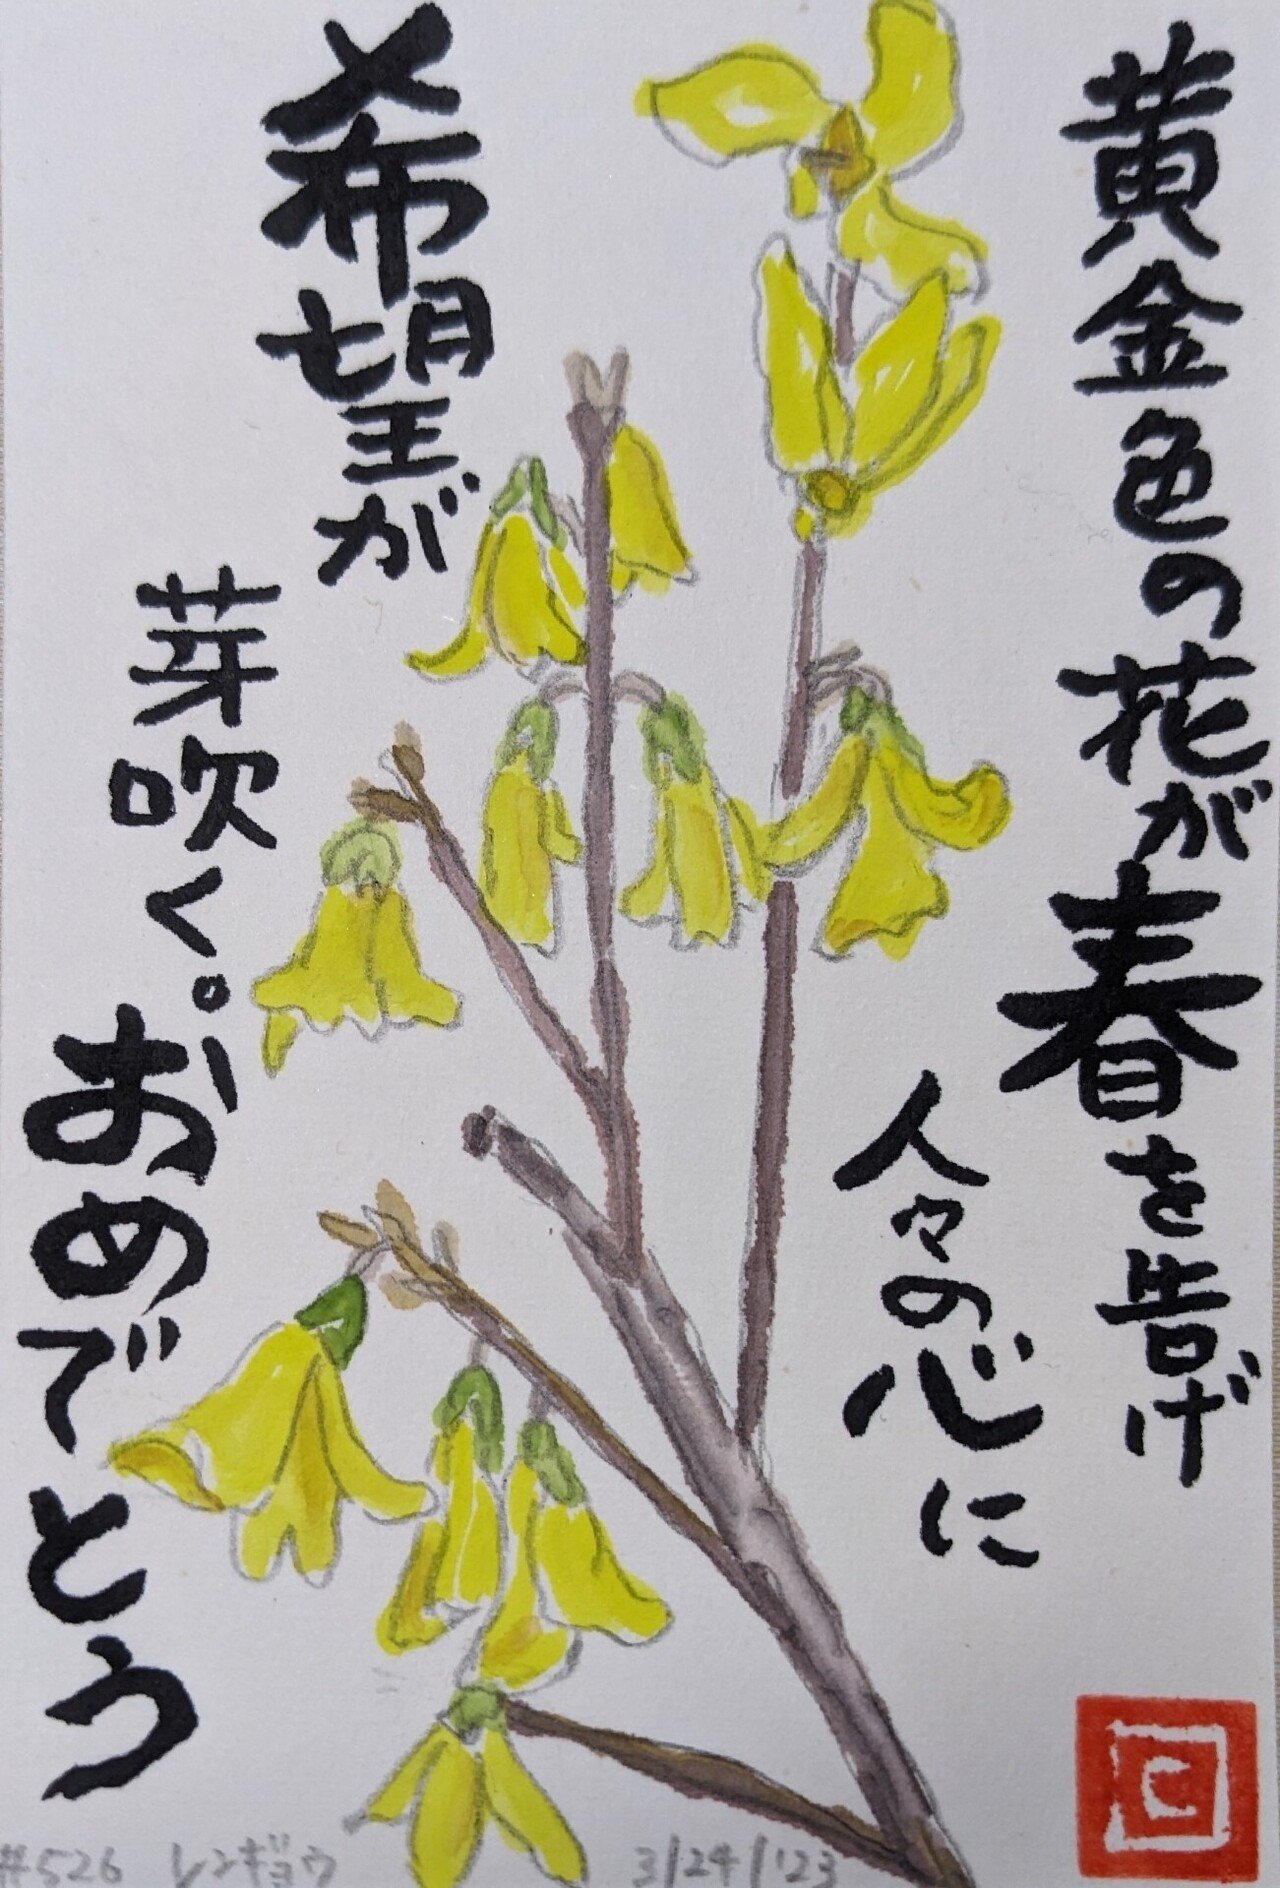 黄金色の花が春を告げ
人々の心に
希望が
芽吹く。
おめでとう
#526 レンギョウ 3/24/'23